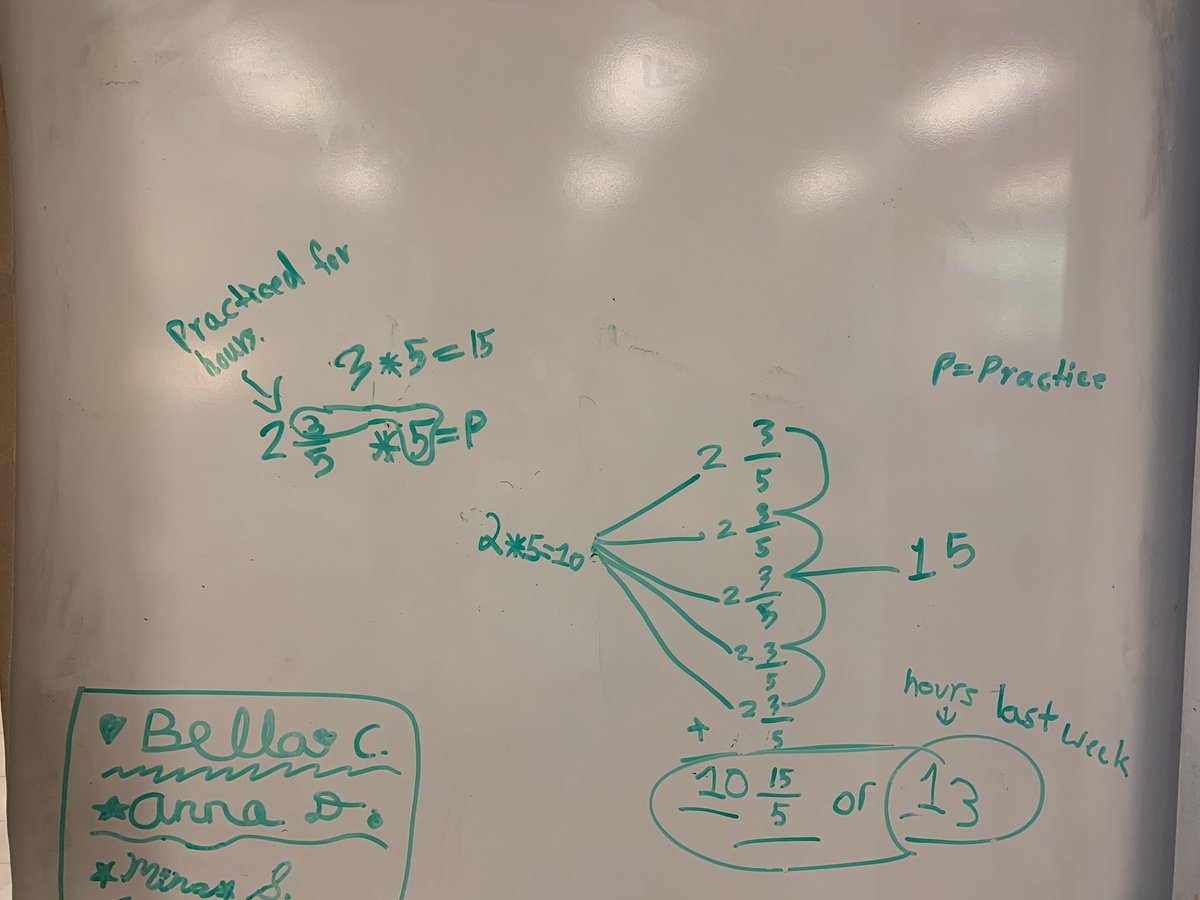 Practiced for
hours.
3*5=15
2 3/5 *5=P
P=Practice
2*5=10
2 3/5
2 3/5
2 3/5
2 3/5
+ 2 3/5
15
hours last week
10 15/5 or 13
Bella C.
Anna D.
Mina S.